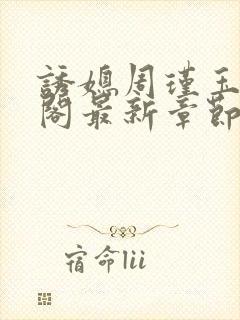 誘媳周瑾玉
閣最新章節
宿命lii